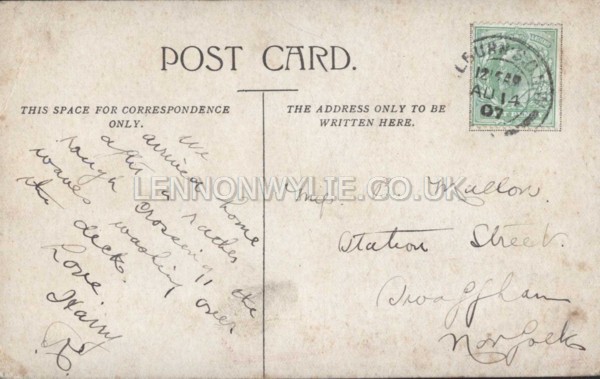 POST CARD.
THIS SPACE FOR CORRESPONDENCE
ONLY.
THE ADDRESS ONLY TO BE
WRITTEN HERE.
We
arrived home
after a rather
rough crossing, the
waves washing over
the deck.
Love.
Harry
Mallon.
Station Street.
Swaffham
Norfolk
LBURN
12.15AM
AU 14
07
LENNONWYLIE.CO.UK